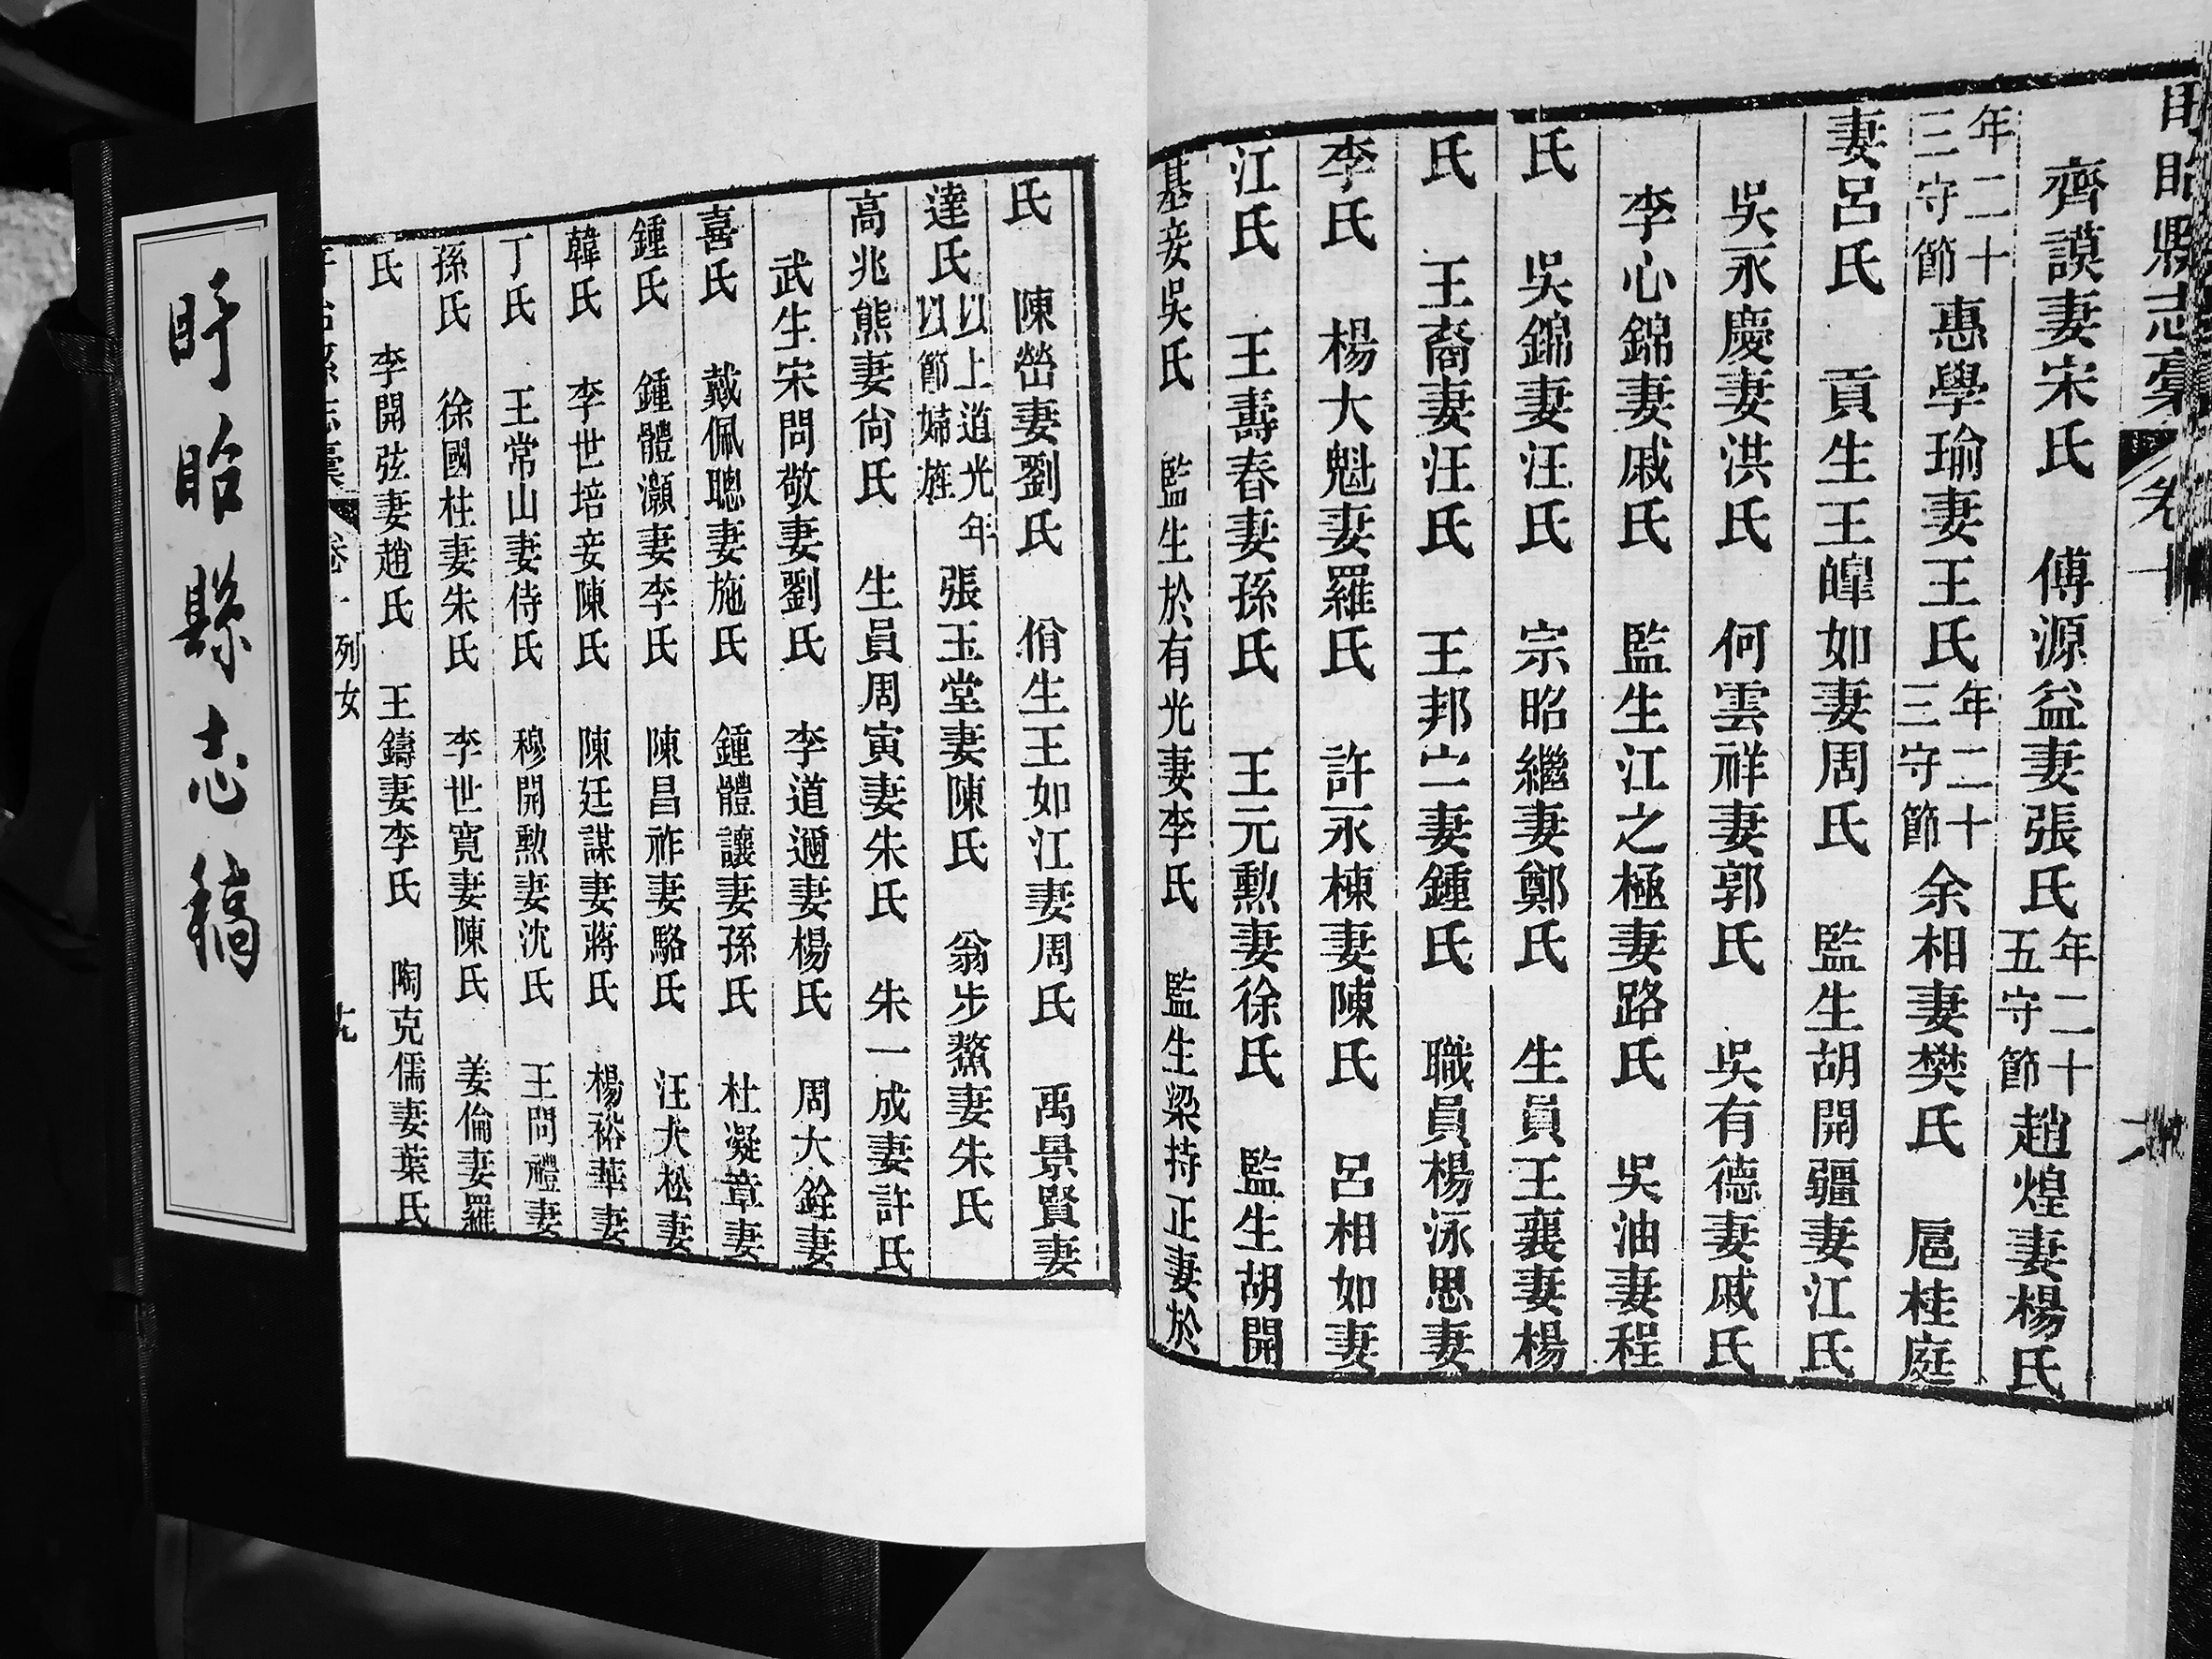 盱眙縣志稾 卷十
齊謨妻宋氏 傅源益妻張氏年二十五守節趙煌妻楊氏
年二十三守節惠學瑜妻王氏年二十三守節余相妻樊氏 扈桂庭
妻呂氏 貢生王皥如妻周氏 監生胡開疆妻江氏
吳永慶妻洪氏 何雲祥妻郭氏 吳有德妻戚氏
李心錦妻戚氏 監生江之極妻路氏 吳油妻程
氏 吳錦妻汪氏 宗昭繼妻鄭氏 生員王襄妻楊
氏 王裔妻汪氏 王邦妻鍾氏 職員楊泳思妻
李氏 楊大魁妻羅氏 許永棟妻陳氏 呂相如妻
江氏 王壽春妻孫氏 王元勲妻徐氏 監生胡開
基妾吳氏 監生於有光妻李氏 監生梁持正妻於
氏 陳塋妻劉氏 佾生王如江妻周氏 禹景賢妻
達氏以上道光年以節婦旌 張玉堂妻陳氏 翁步鰲妻朱氏
高兆熊妻尙氏 生員周寅妻朱氏 朱一成妻許氏
武生宋問敬妻劉氏 李道邇妻楊氏 周大銓妻
喜氏 戴佩聰妻施氏 鍾體讓妻孫氏 杜凝章妻
鍾氏 鍾體灝妻李氏 陳昌祚妻駱氏 汪大松妻
韓氏 李世培妾陳氏 陳廷謀妻蔣氏 楊裕華妻
丁氏 王常山妻侍氏 穆開勲妻沈氏 王問禮妻
孫氏 徐國柱妻朱氏 李世寬妻陳氏 姜倫妻羅
氏 李開弦妻趙氏 王鑄妻李氏 陶克儒妻葉氏
列女
盱眙縣志稿